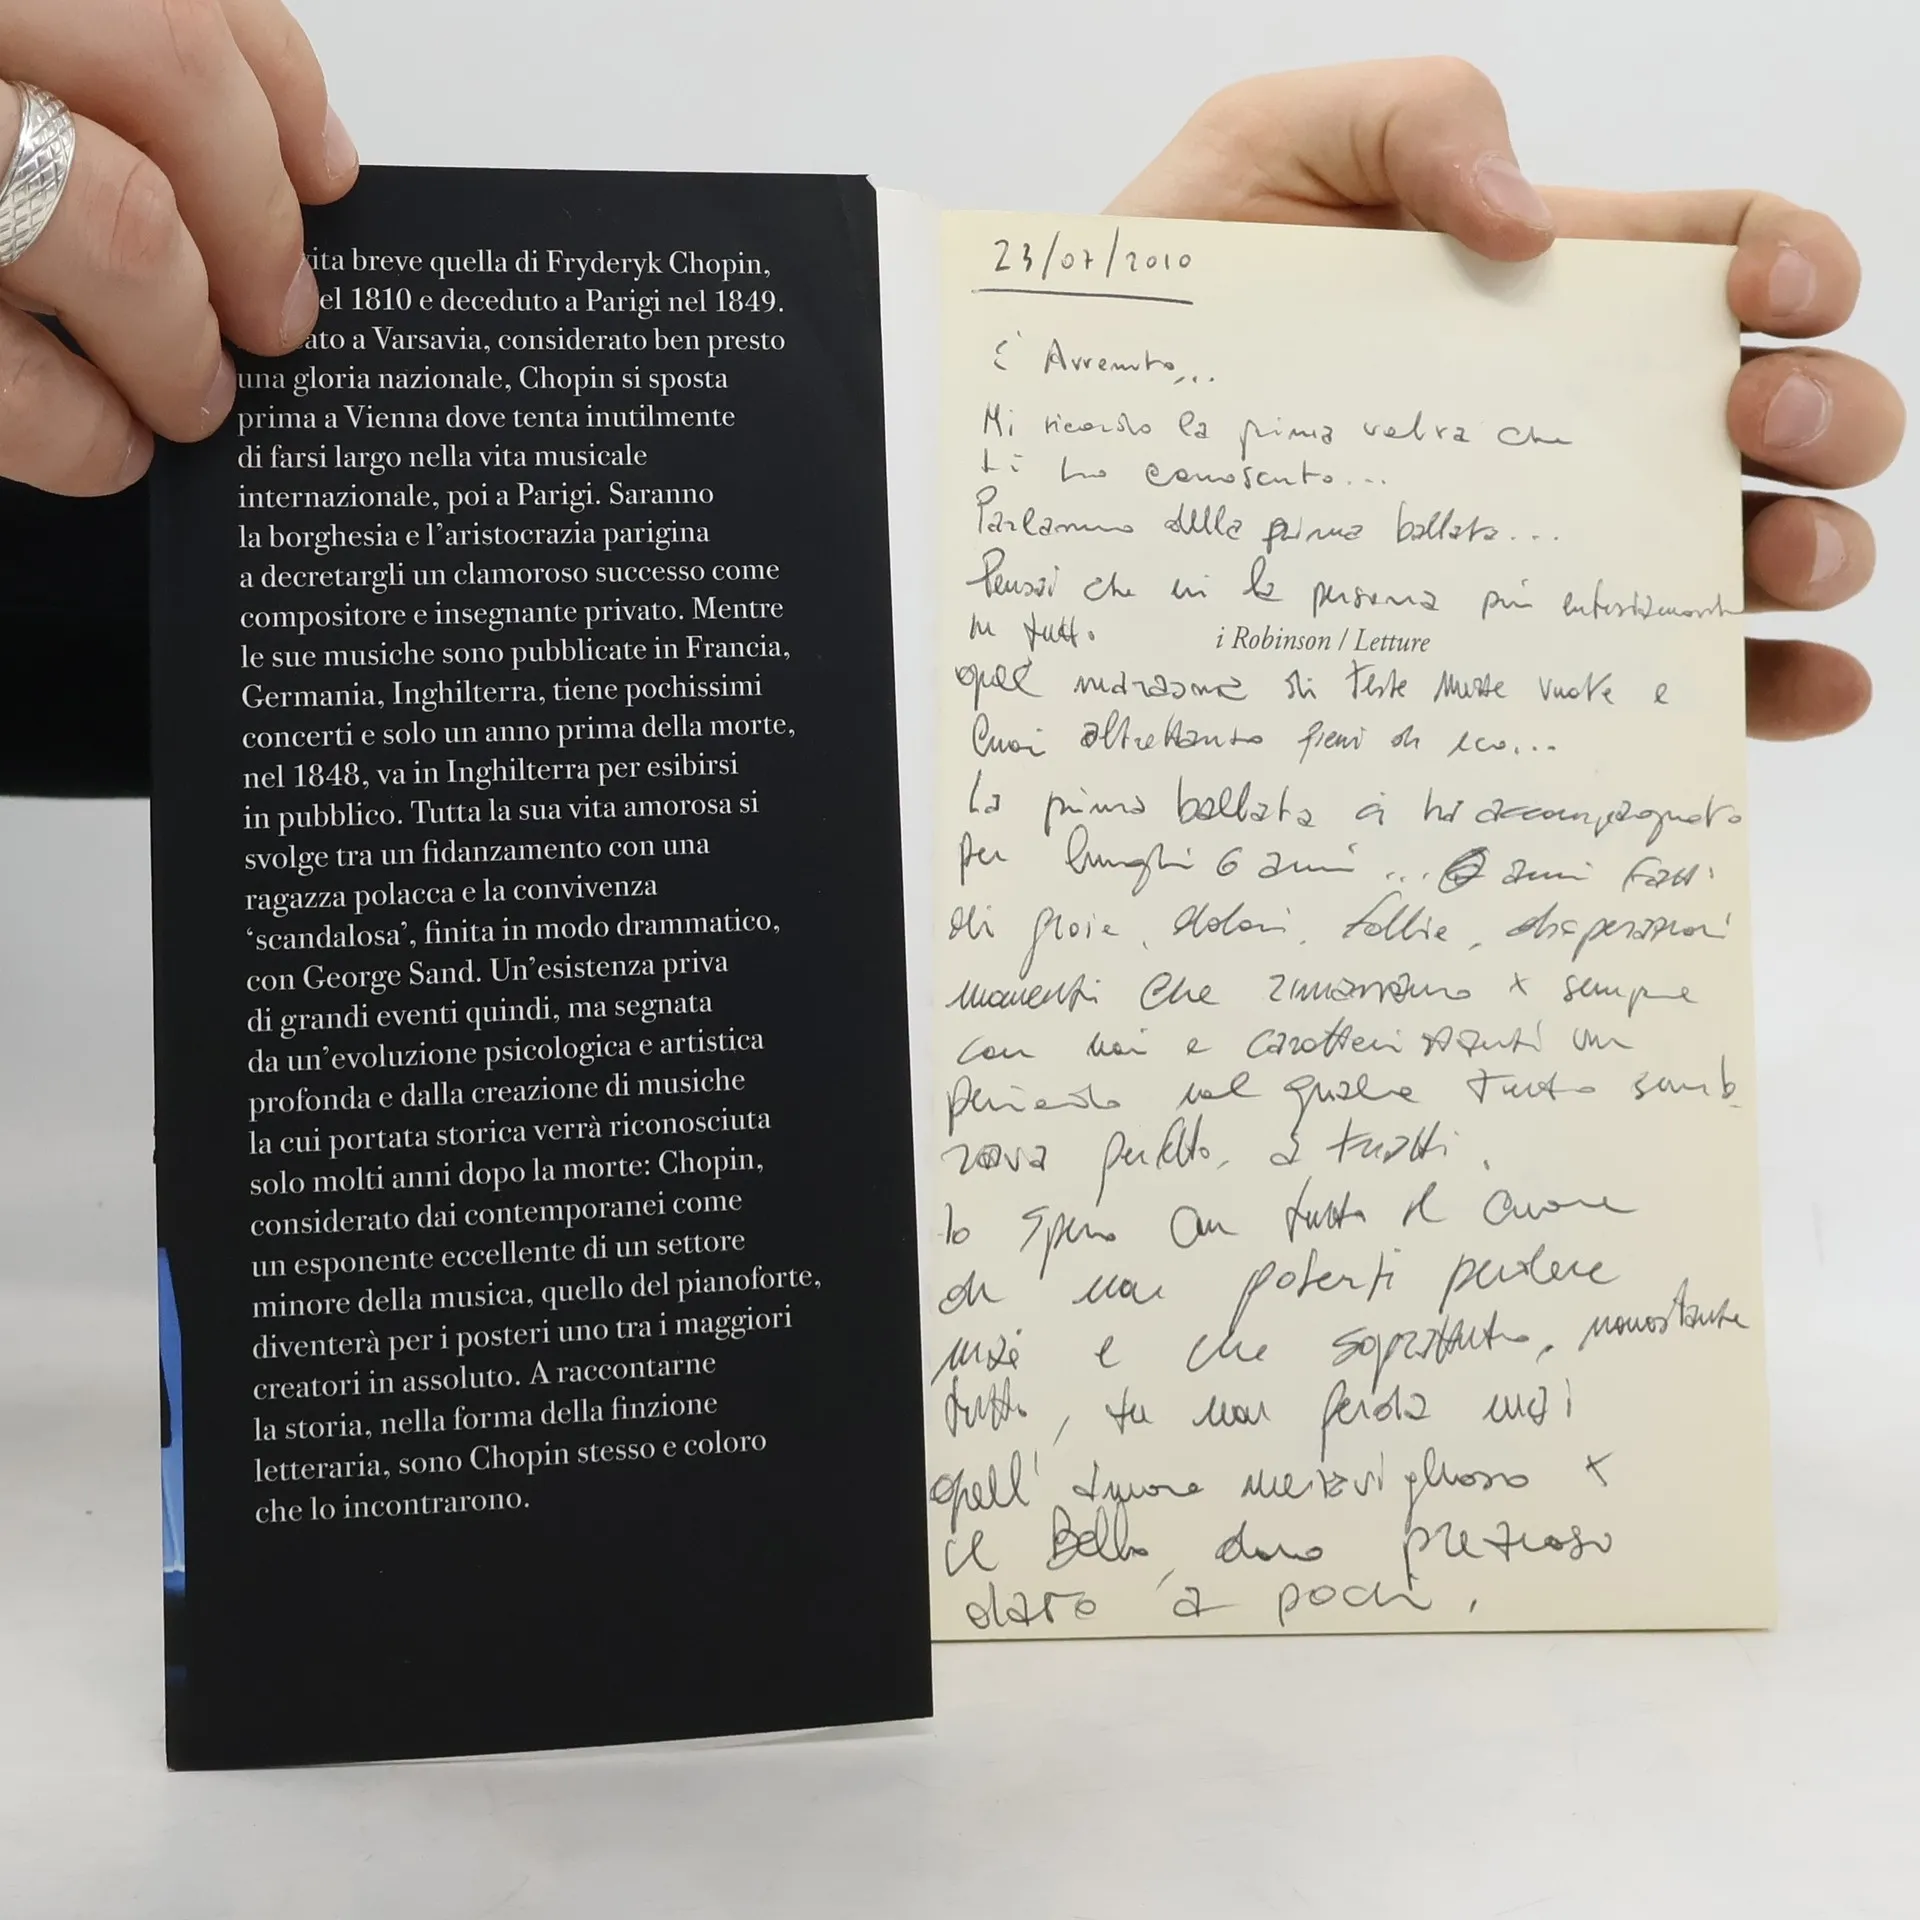 vita breve quella di Fryderyk Chopin,
el 1810 e deceduto a Parigi nel 1849.
ato a Varsavia, considerato ben presto
una gloria nazionale, Chopin si sposta
prima a Vienna dove tenta inutilmente
di farsi largo nella vita musicale
internazionale, poi a Parigi. Saranno
la borghesia e l'aristocrazia parigina
a decretargli un clamoroso successo come
compositore e insegnante privato. Mentre
le sue musiche sono pubblicate in Francia,
Germania, Inghilterra, tiene pochissimi
concerti e solo un anno prima della morte,
nel 1848, va in Inghilterra per esibirsi
in pubblico. Tutta la sua vita amorosa si
svolge tra un fidanzamento con una
ragazza polacca e la convivenza
‘scandalosa’, finita in modo drammatico,
con George Sand. Un'esistenza priva
di grandi eventi quindi, ma segnata
da un'evoluzione psicologica e artistica
profonda e dalla creazione di musiche
la cui portata storica verrà riconosciuta
solo molti anni dopo la morte: Chopin,
considerato dai contemporanei come
un esponente eccellente di un settore
minore della musica, quello del pianoforte,
diventerà per i posteri uno tra i maggiori
creatori in assoluto. A raccontarne
la storia, nella forma della finzione
letteraria, sono Chopin stesso e coloro
che lo incontrarono.
23/07/2010
È Avvenuto...
Mi ricordo la prima volta che
ti ho conosciuto...
Parlammo della prima ballata...
Pensai che eri la persona più
in tutto.
i Robinson / Letture
quel di teste mezze vuote e
cuori altrettanto pieni di eco...
La prima ballata ci ha accompagnato
per lunghi 6 anni ... 6 anni fatti
di gioie, dolori, follie, disperazioni
momenti che rimarranno x sempre
con noi e caratterizzanti un
periodo nel quale tutto semb
rava perfetto, a tratti.
Io spero con tutto il cuore
di non poterti perdere
mai e che soprattutto, nonostante
tutto, tu non perda mai
quell' amore meraviglioso x
il Bello, dono prezioso
dato a pochi.